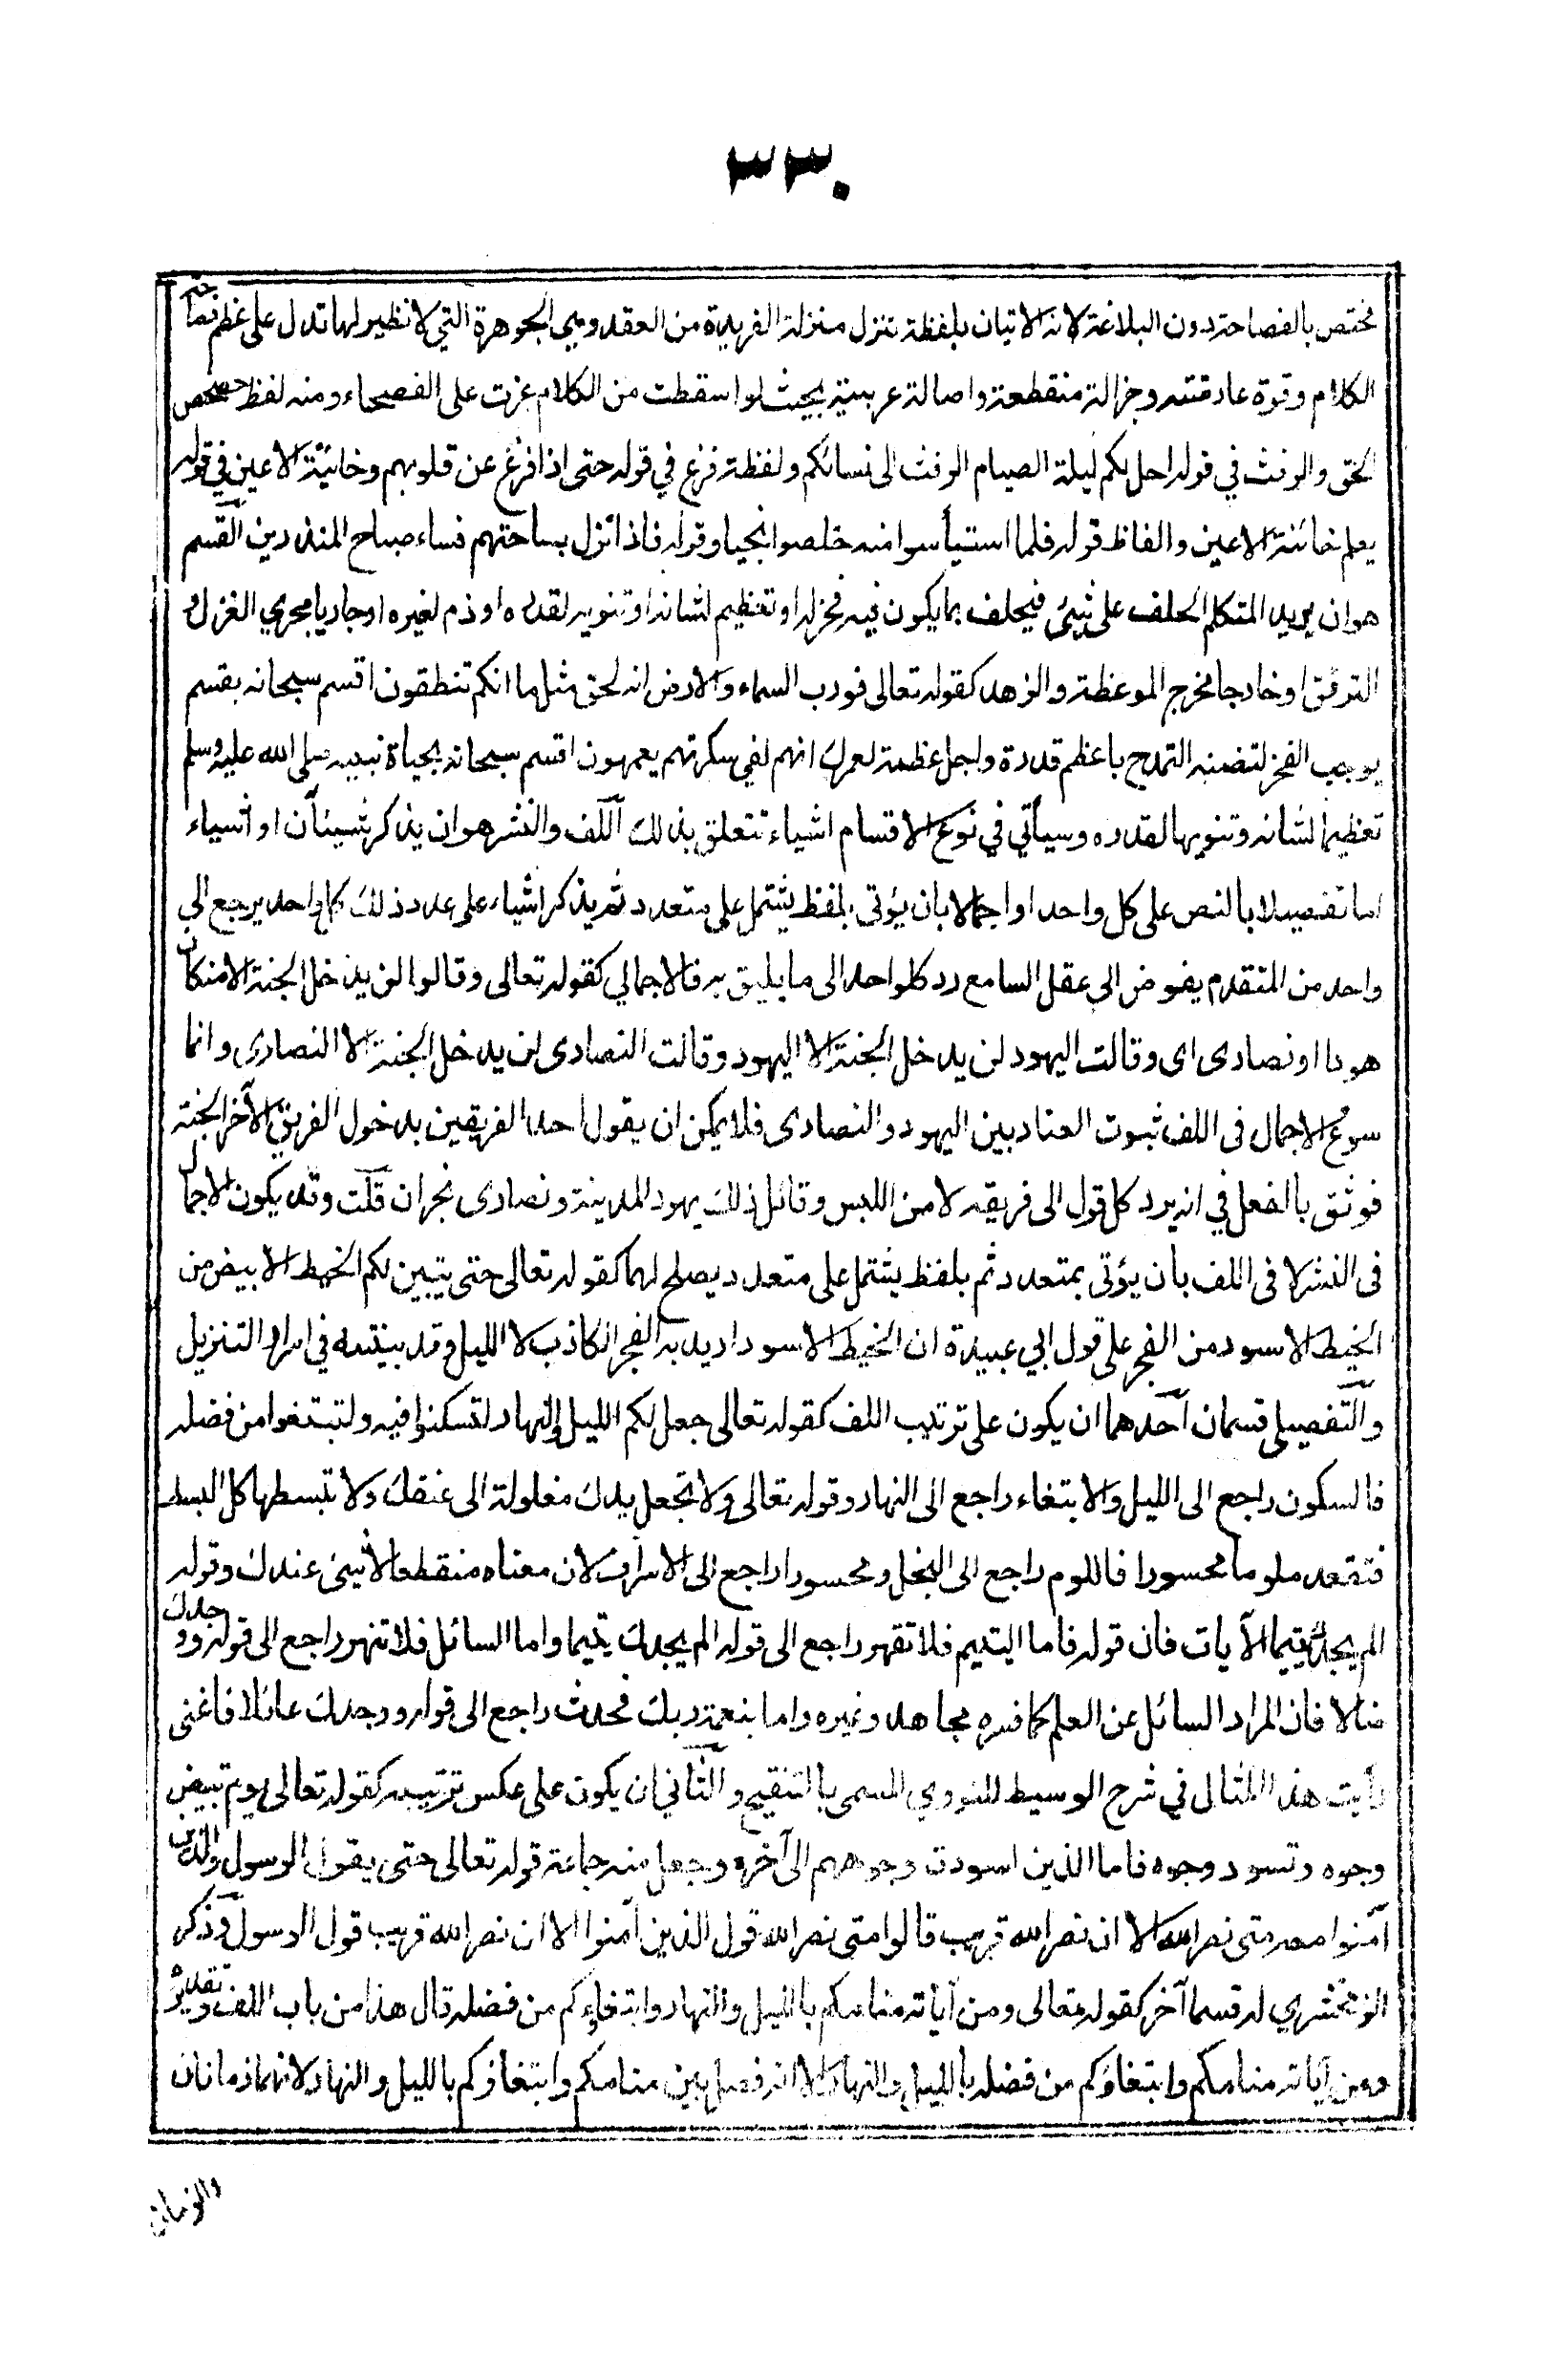 ٣٣٠
مختص بالفصاحة دون البلاغة لانه الاتيان بلفظة تنزل منزلة الفريدة من العقد وهي الجوهرة التي لا نظير لها تدل على عظم فصاحة
الكلام وقوة عارضته وجزالة منقطعة واصالة عربيته بحيث لو اسقطت من الكلام عزت على الفصحاء ومنه لفظ حصحص
الحق والرفث في قوله احل لكم ليلة الصيام الرفث الى نسائكم ولفظة فزع في قوله حتى اذا فزع عن قلوبهم وخائنة الاعين في قوله
يعلم خائنة الاعين والفاظ قوله فلما استيأسوا منه خلصوا نجيا وقوله فاذا نزل بساحتهم فساء صباح المنذرين القسم
هو ان يريد المتكلم الحلف على شيئ فيحلف بما يكون فيه فخر له او تعظيم لشانه او تنويه لقدره او ذم لغيره او جاريا مجرى الغزل و
الترقق او خارجا مخرج الموعظة والزهد كقوله تعالى فورب السماء والارض انه لحق مثل ما انكم تنطقون اقسم سبحانه بقسم
يوجب الفخر لتضمنه التمدح باعظم قدرة واجل عظمة لعمرك انهم لفي سكرتهم يعمهون اقسم سبحانه بحياة نبيه صلى الله عليه وسلم
تعظيما لشانه وتنويها لقدره وسيأتي في نوع الاقسام اشياء تتعلق بذلك اللف والنشر هو ان يذكر شيئان او اشياء
اما تفصيلا بالنص على كل واحد او اجمالا بان يؤتى بلفظ يشتمل على متعدد ثم يذكر اشياء على عدد ذلك كل واحد يرجع الى
واحد من المتقدم يفوض الى عقل السامع رد كل واحد الى ما يليق به فالاجمالي كقوله تعالى وقالوا لن يدخل الجنة الا من كان
هودا او نصارى اى وقالت اليهود لن يدخل الجنة الا اليهود وقالت النصارى لن يدخل الجنة الا النصارى وانما
سوغ الاجمال فى اللف ثبوت العناد بين اليهود والنصارى فلا يمكن ان يقول احد الفريقين بدخول الفريق الآخر الجنة
فوثق بالفعل في انه يرد كل قول الى فريقه لامن اللبس وقائل ذلك يهود المدينة ونصارى نجران قلت وقد يكون الاجمال
فى النشر لا فى اللف بان يؤتى بمتعدد ثم بلفظ يشتمل على متعدد يصلح لهما كقوله تعالى حتى يتبين لكم الخيط الابيض من
الخيط الاسود من الفجر على قول ابي عبيدة ان الخيط الاسود اريد به الفجر الكاذب لا الليل وقد بينته في اسرار التنزيل
والتفصيلى قسمان احدهما ان يكون على ترتيب اللف كقوله تعالى جعل لكم الليل والنهار لتسكنوا فيه ولتبتغوا من فضله
فالسكون راجع الى الليل والابتغاء راجع الى النهار وقوله تعالى ولا تجعل يدك مغلولة الى عنقك ولا تبسطها كل البسط
فتقعد ملوما محسورا فاللوم راجع الى البخل ومحسورا راجع الى الاسراف لان معناه منقطعا لا شيئ عندك وقوله
الم يجدك يتيما الآيات فان قوله فاما اليتيم فلا تقهر راجع الى قوله الم يجدك يتيما واما السائل فلا تنهر راجع الى قوله ووجدك
ضالا فان المراد السائل عن العلم كما فسره مجاهد وغيره واما بنعمة ربك فحدث راجع الى قوله ووجدك عائلا فاغنى
رأيت هذا المثال في شرح الوسيط للنووي المسمى بالتنقيح والثاني ان يكون على عكس ترتيبه كقوله تعالى يوم تبيض
وجوه وتسود وجوه فاما الذين اسودت وجوههم الى آخره وجعل منه جماعة قوله تعالى حتى يقول الرسول والذين
آمنوا معه متى نصر الله الا ان نصر الله قريب قالوا متى نصر الله قول الذين آمنوا الا ان نصر الله قريب قول الرسول وذكر
الزمخشري له قسما آخر كقوله تعالى ومن آياته منامكم بالليل والنهار وابتغاؤكم من فضله قال هذا من باب اللف وتقديره
ومن آياته منامكم وابتغاؤكم من فضله بالليل والنهار الا انه فصل بين منامكم وابتغاؤكم بالليل والنهار لانهما زمانان
والزمان